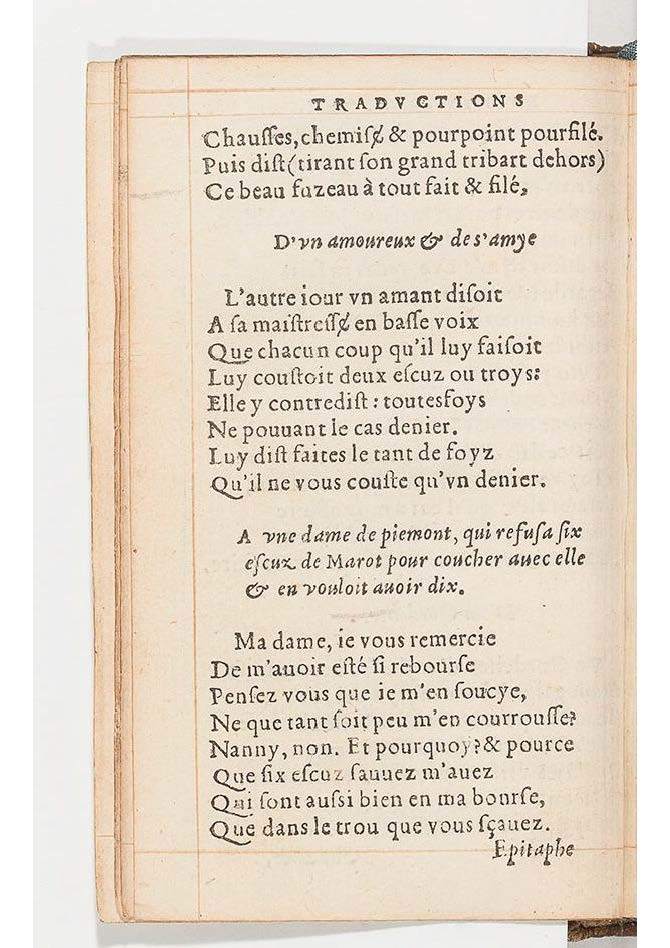 TRADVCTIONS
Chauſſes, chemiſé & pourpoint pourfilé.
Puis diſt (tirant ſon grand tribart dehors)
Ce beau fuzeau à tout fait & filé,
D'vn amoureux & de s'amye
L'autre iour vn amant diſoit
A ſa maiſtreſſé en baſſe voix
Que chacun coup qu'il luy faiſoit
Luy couſtoit deux eſcuz ou troys:
Elle y contrediſt: toutesfoys
Ne pouuant le cas denier.
Luy diſt faites le tant de foyz
Qu'il ne vous couſte qu'vn denier.
A vne dame de piemont, qui refuſa ſix
eſcuz de Marot pour coucher auec elle
& en vouloit auoir dix.
Ma dame, ie vous remercie
De m'auoir eſté ſi rebourſe
Penſez vous que ie m'en ſoucye,
Ne que tant ſoit peu m'en courrouſſe?
Nanny, non. Et pourquoy? & pource
Que ſix eſcuz ſauuez m'auez
Qui ſont auſsi bien en ma bourſe,
Que dans le trou que vous ſçauez.
Epitaphe